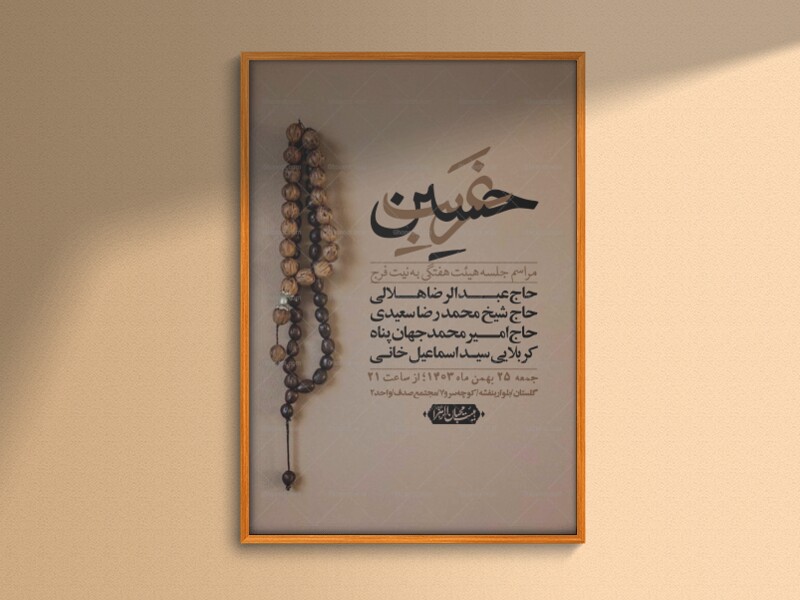 حسین غریب
مراسم جلسه هیئت هفتگی به نیت فرج
حاج عبدالرضا هلالی
حاج شیخ محمدرضا سعیدی
حاج امیر محمد جهان پناه
کربلایی سید اسماعیل خانی
جمعه ۲۵ بهمن ماه ۱۴۰۳؛ از ساعت ۲۱
گلستان/بلوار بنفشه/کوچه سرو۷/مجتمع صدف/واحد۲